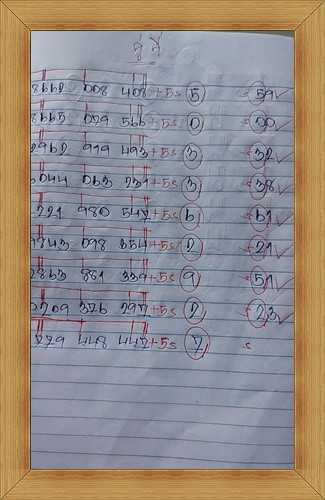 สูตร
8662 008 408+5=5 =59✓
8665 029 566+5=0 =00✓
2962 919 493+5=3 =32✓
3044 063 231+5=3 =38✓
221 980 547+5=6 =61✓
9843 098 654+5=2 =21✓
2863 881 339+5=9 =51✓
0209 376 297+5=2 =23✓
779 448 447+5=7 =